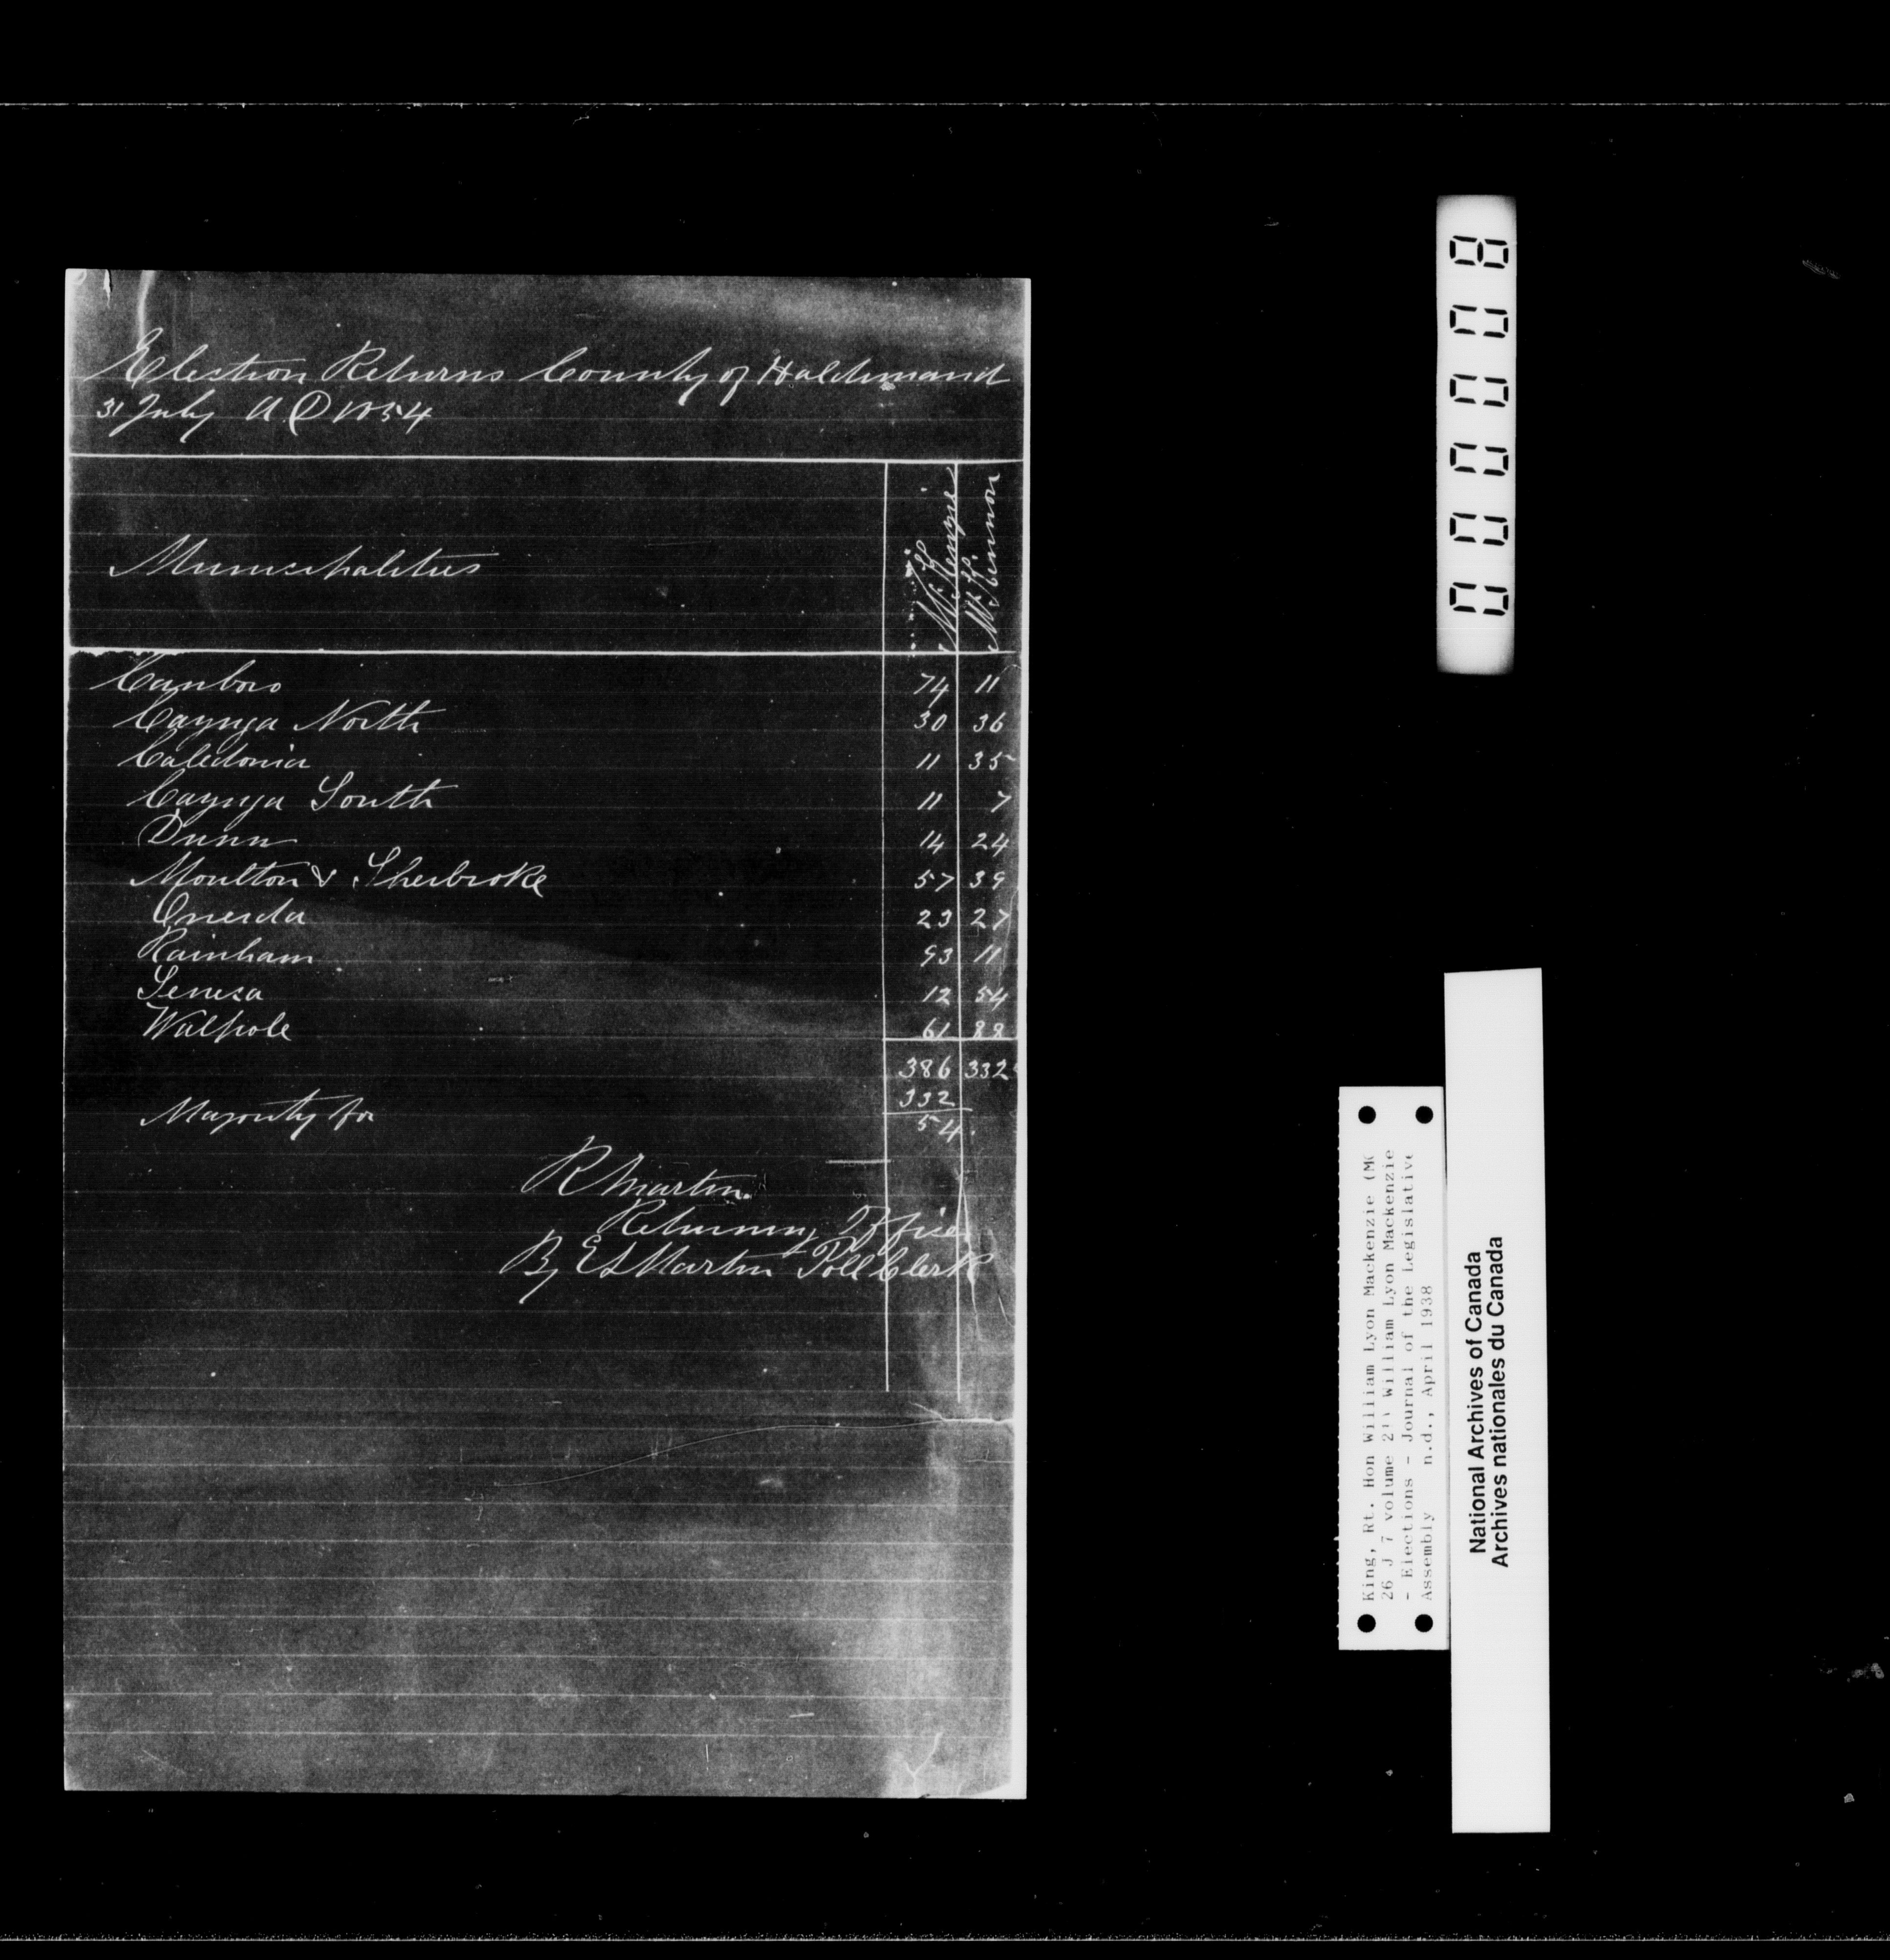 Election Returns County of Haldimand
31 July A.D 1854
Municipalities McKenzie McKinnon
Canboro 74 11
Cayuga North 30 36
Caledonia 11 35
Cayuga South 11 7
Dunn 14 24
Moulton & Sherbroke 57 39
Oneida 23 27
Rainham 93 11
Seneca 12 54
Walpole 61 88
386 332
332
Majority for 54
R Martin
Returning Officer
By E S Martin Poll Clerk
000008
King, Rt. Hon William Lyon Mackenzie (MG
26 J 7 volume William Lyon Mackenzie
- Elections - Journal of the Legislative
Assembly n.d., April 1938
National Archives of Canada
Archives nationales du Canada